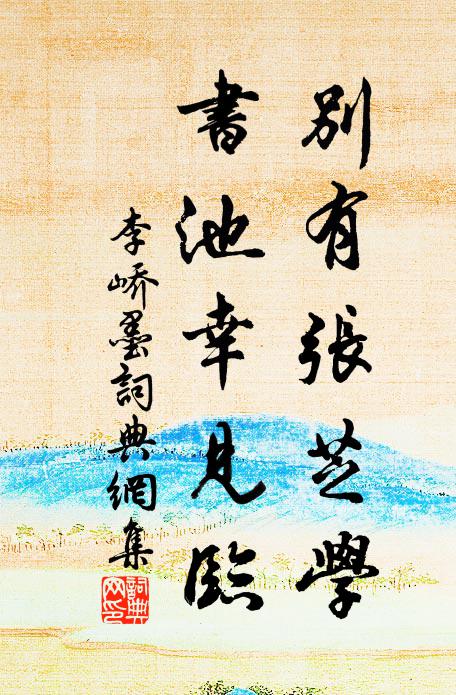 別有張芝學
書池幸見臨
李嶠墨詞典網集
詞典